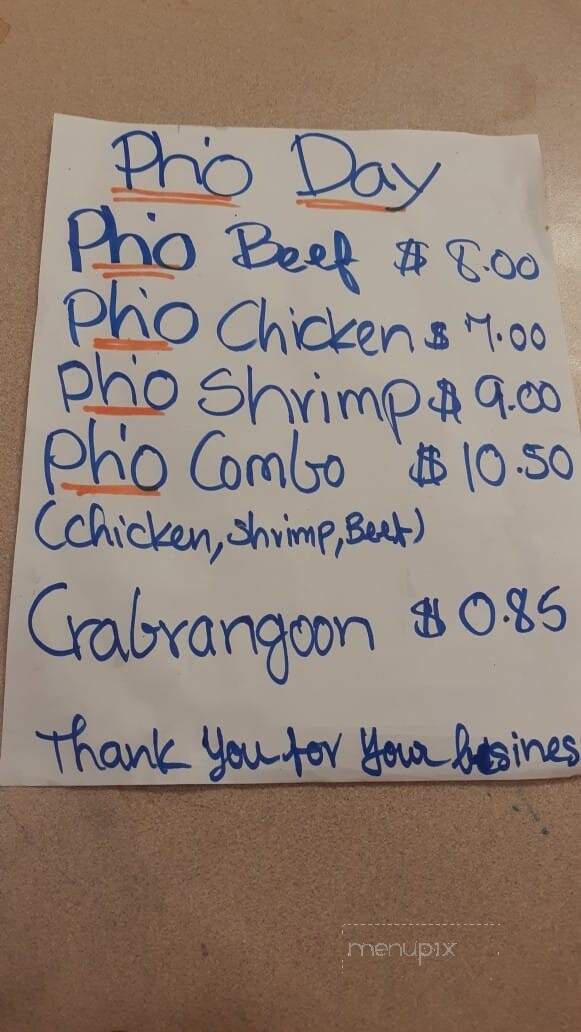 Ph'o Day
Ph'o Beef $ 8.00
Ph'o Chicken $ 7.00
Ph'o Shrimp $ 9.00
Ph'o Combo $ 10.50
(Chicken, Shrimp, Beef)
Crabrangoon $ 0.85
Thank You for Your busines
menupix